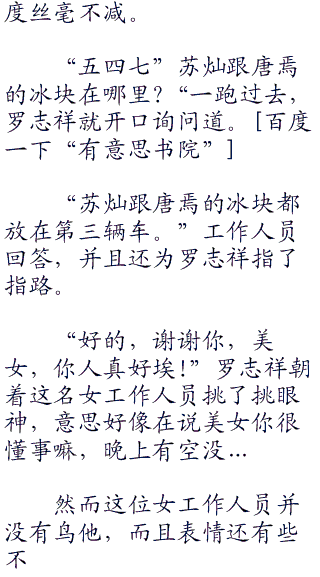 度丝毫不减。
“五四七”苏灿跟唐焉
的冰块在哪里？“一跑过去，
罗志祥就开口询问道。[百度
一下“有意思书院”]
“苏灿跟唐焉的冰块都
放在第三辆车。”工作人员
回答，并且还为罗志祥指了
指路。
“好的，谢谢你，美
女，你人真好埃!”罗志祥朝
着这名女工作人员挑了挑眼
神，意思好像在说美女你很
懂事嘛，晚上有空没...
然而这位女工作人员并
没有鸟他，而且表情还有些
不